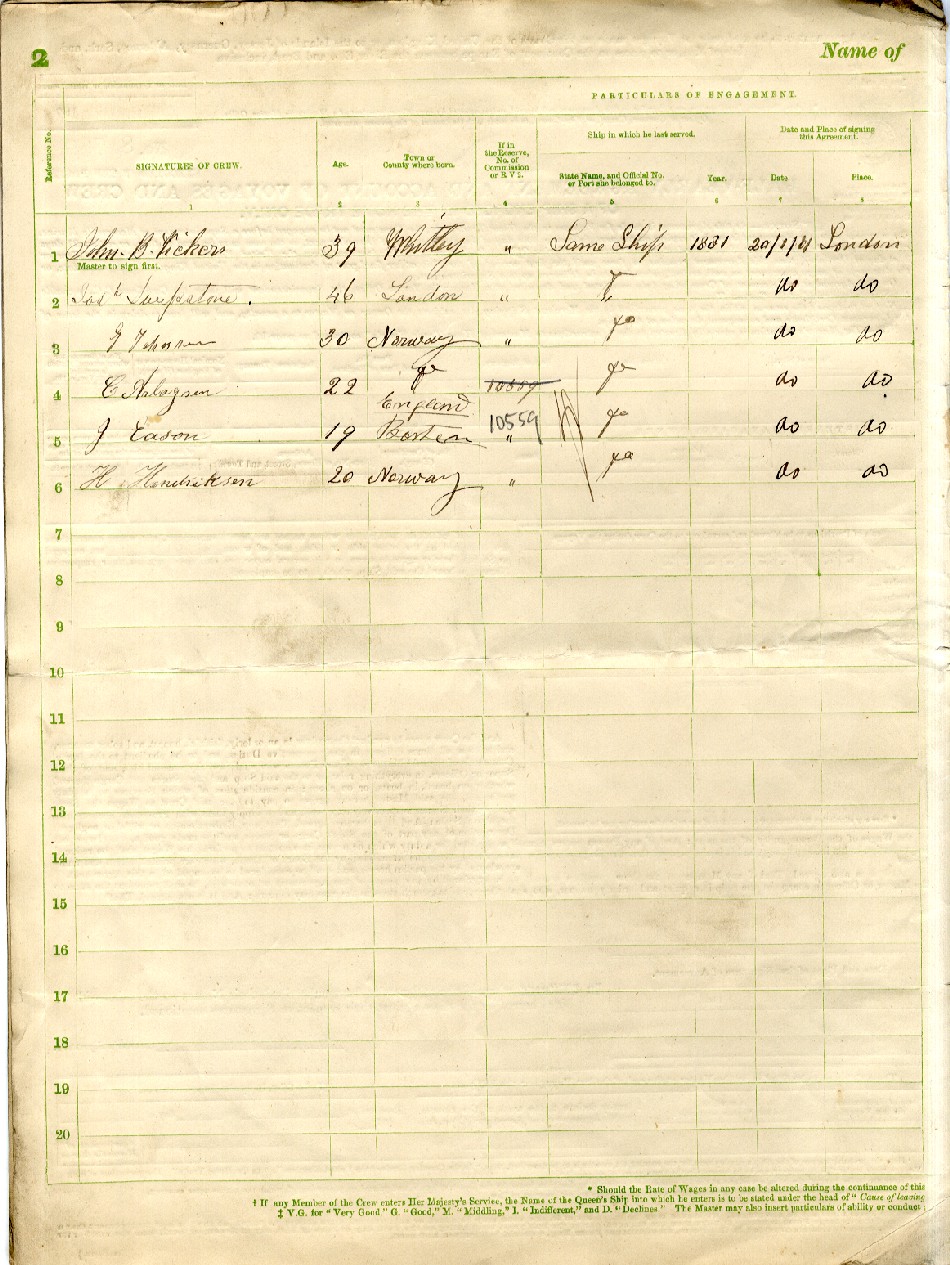 2
Name of
PARTICULARS OF ENGAGEMENT.
Reference No.
SIGNATURES OF CREW.
Age.
Town or
County where born.
If in
the Reserve,
No. of
Commission
or R V 2.
Ship in which he last served.
State Name, and Official No.
or Port she belonged to.
Year.
Date and Place of signing
this Agreement.
Date
Place.
1 2 3 4 5 6 7 8
1 John. B. Vickers 39 Whitby " Same Ship 1881 20/1/81 London
Master to sign first.
2 46 London " do do
3 30 Norway " do do do
4 C 22 do 10559 do do do
England
5 J Eason 19 Boston 10559 " do do do
6 H Hendriksen 20 Norway " do do do
7
8
9
10
11
12
13
14
15
16
17
18
19
20
* Should the Rate of Wages in any case be altered during the continuance of this
† If any Member of the Crew enters Her Majesty's Service, the Name of the Queen's Ship into which he enters is to be stated under the head of "Cause of leaving
‡ V.G. for "Very Good" G. "Good," M. "Middling," I. "Indifferent," and D. "Declines" The Master may also insert particulars of ability or conduct